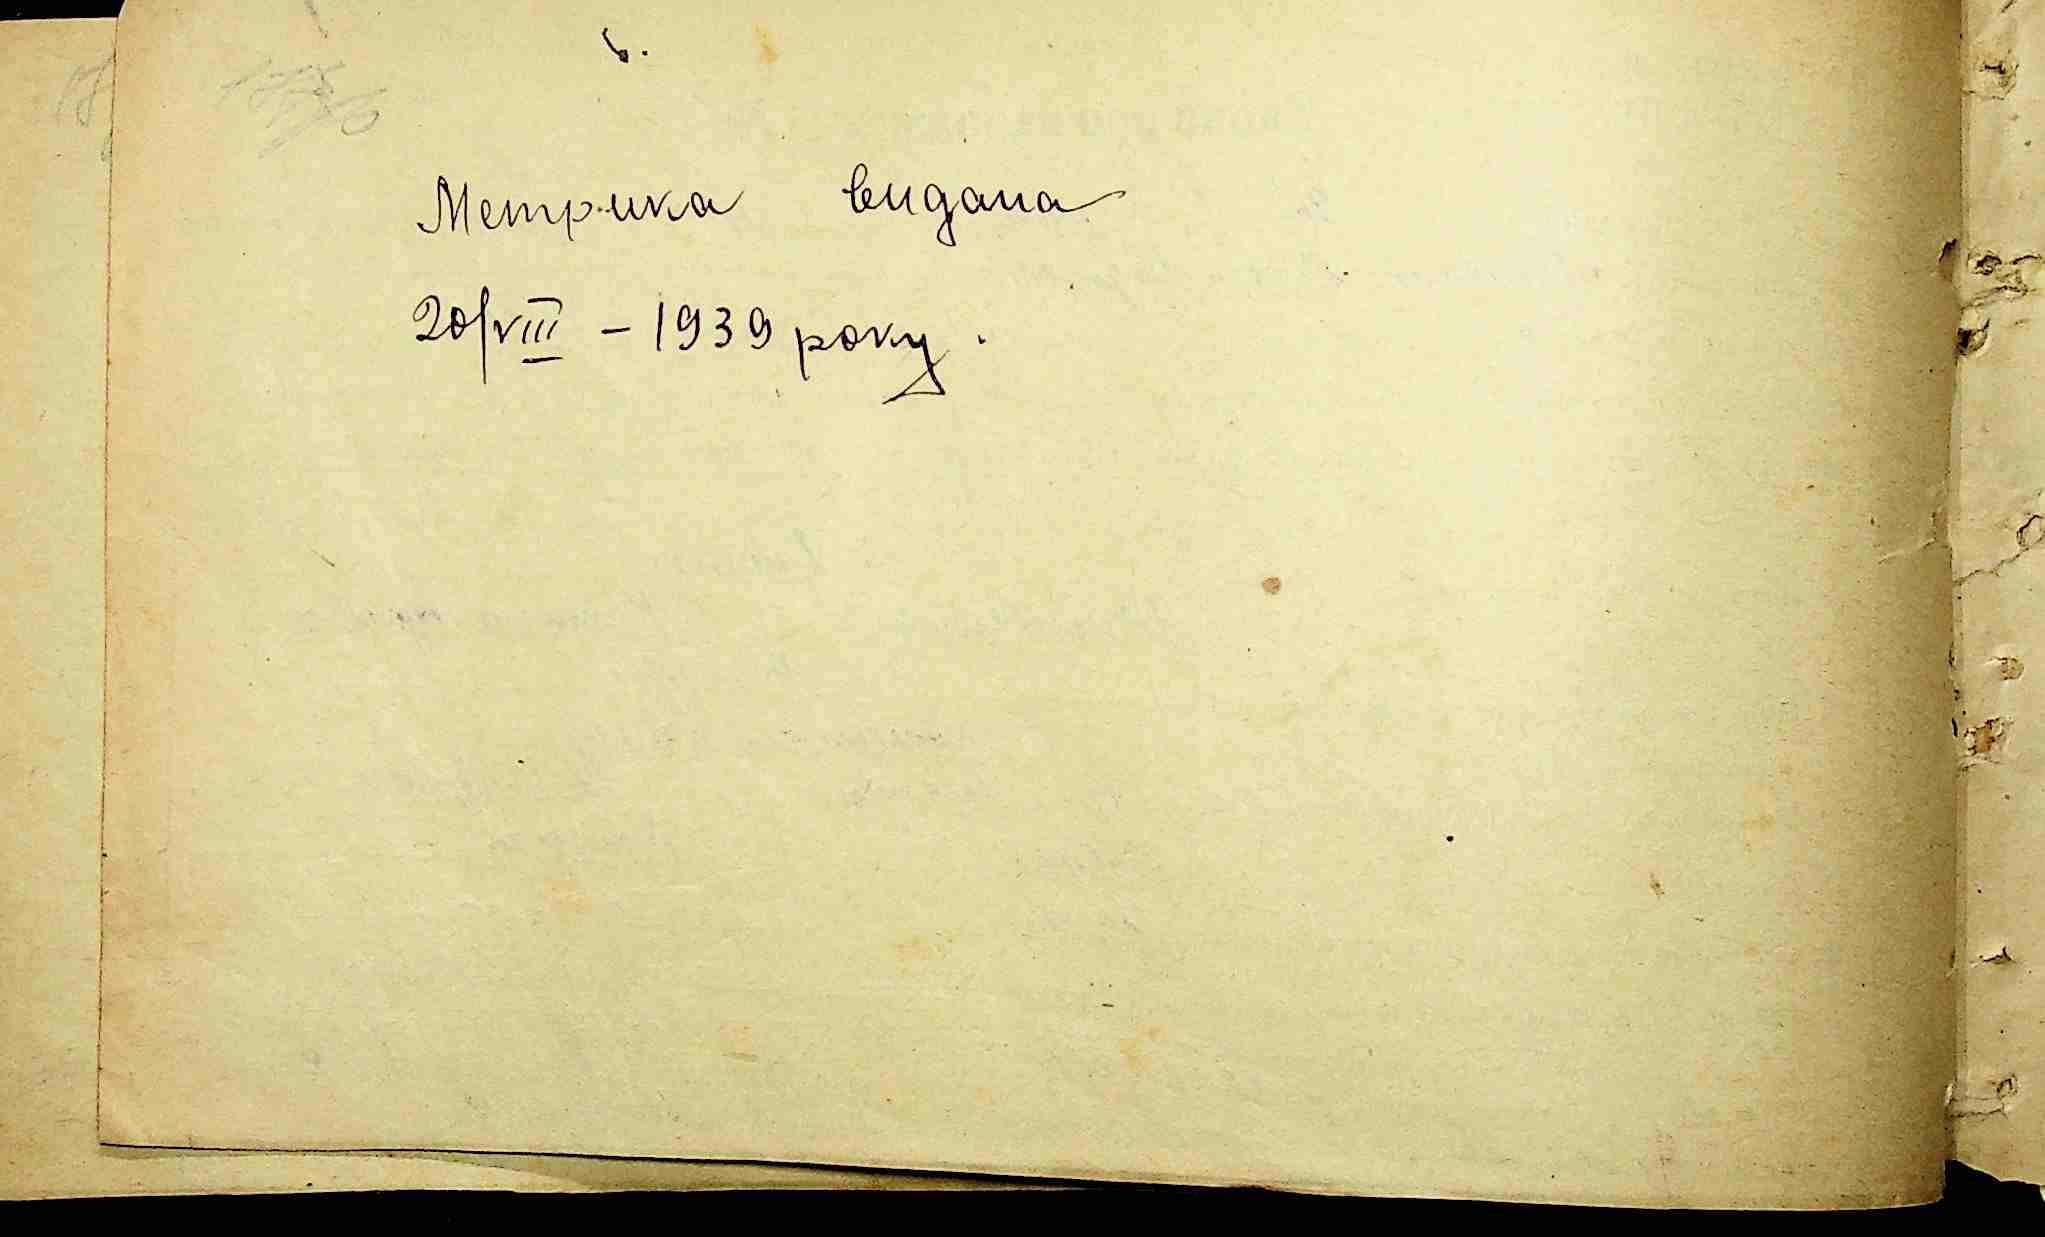 Метрика видана
20/VIII – 1939 року.